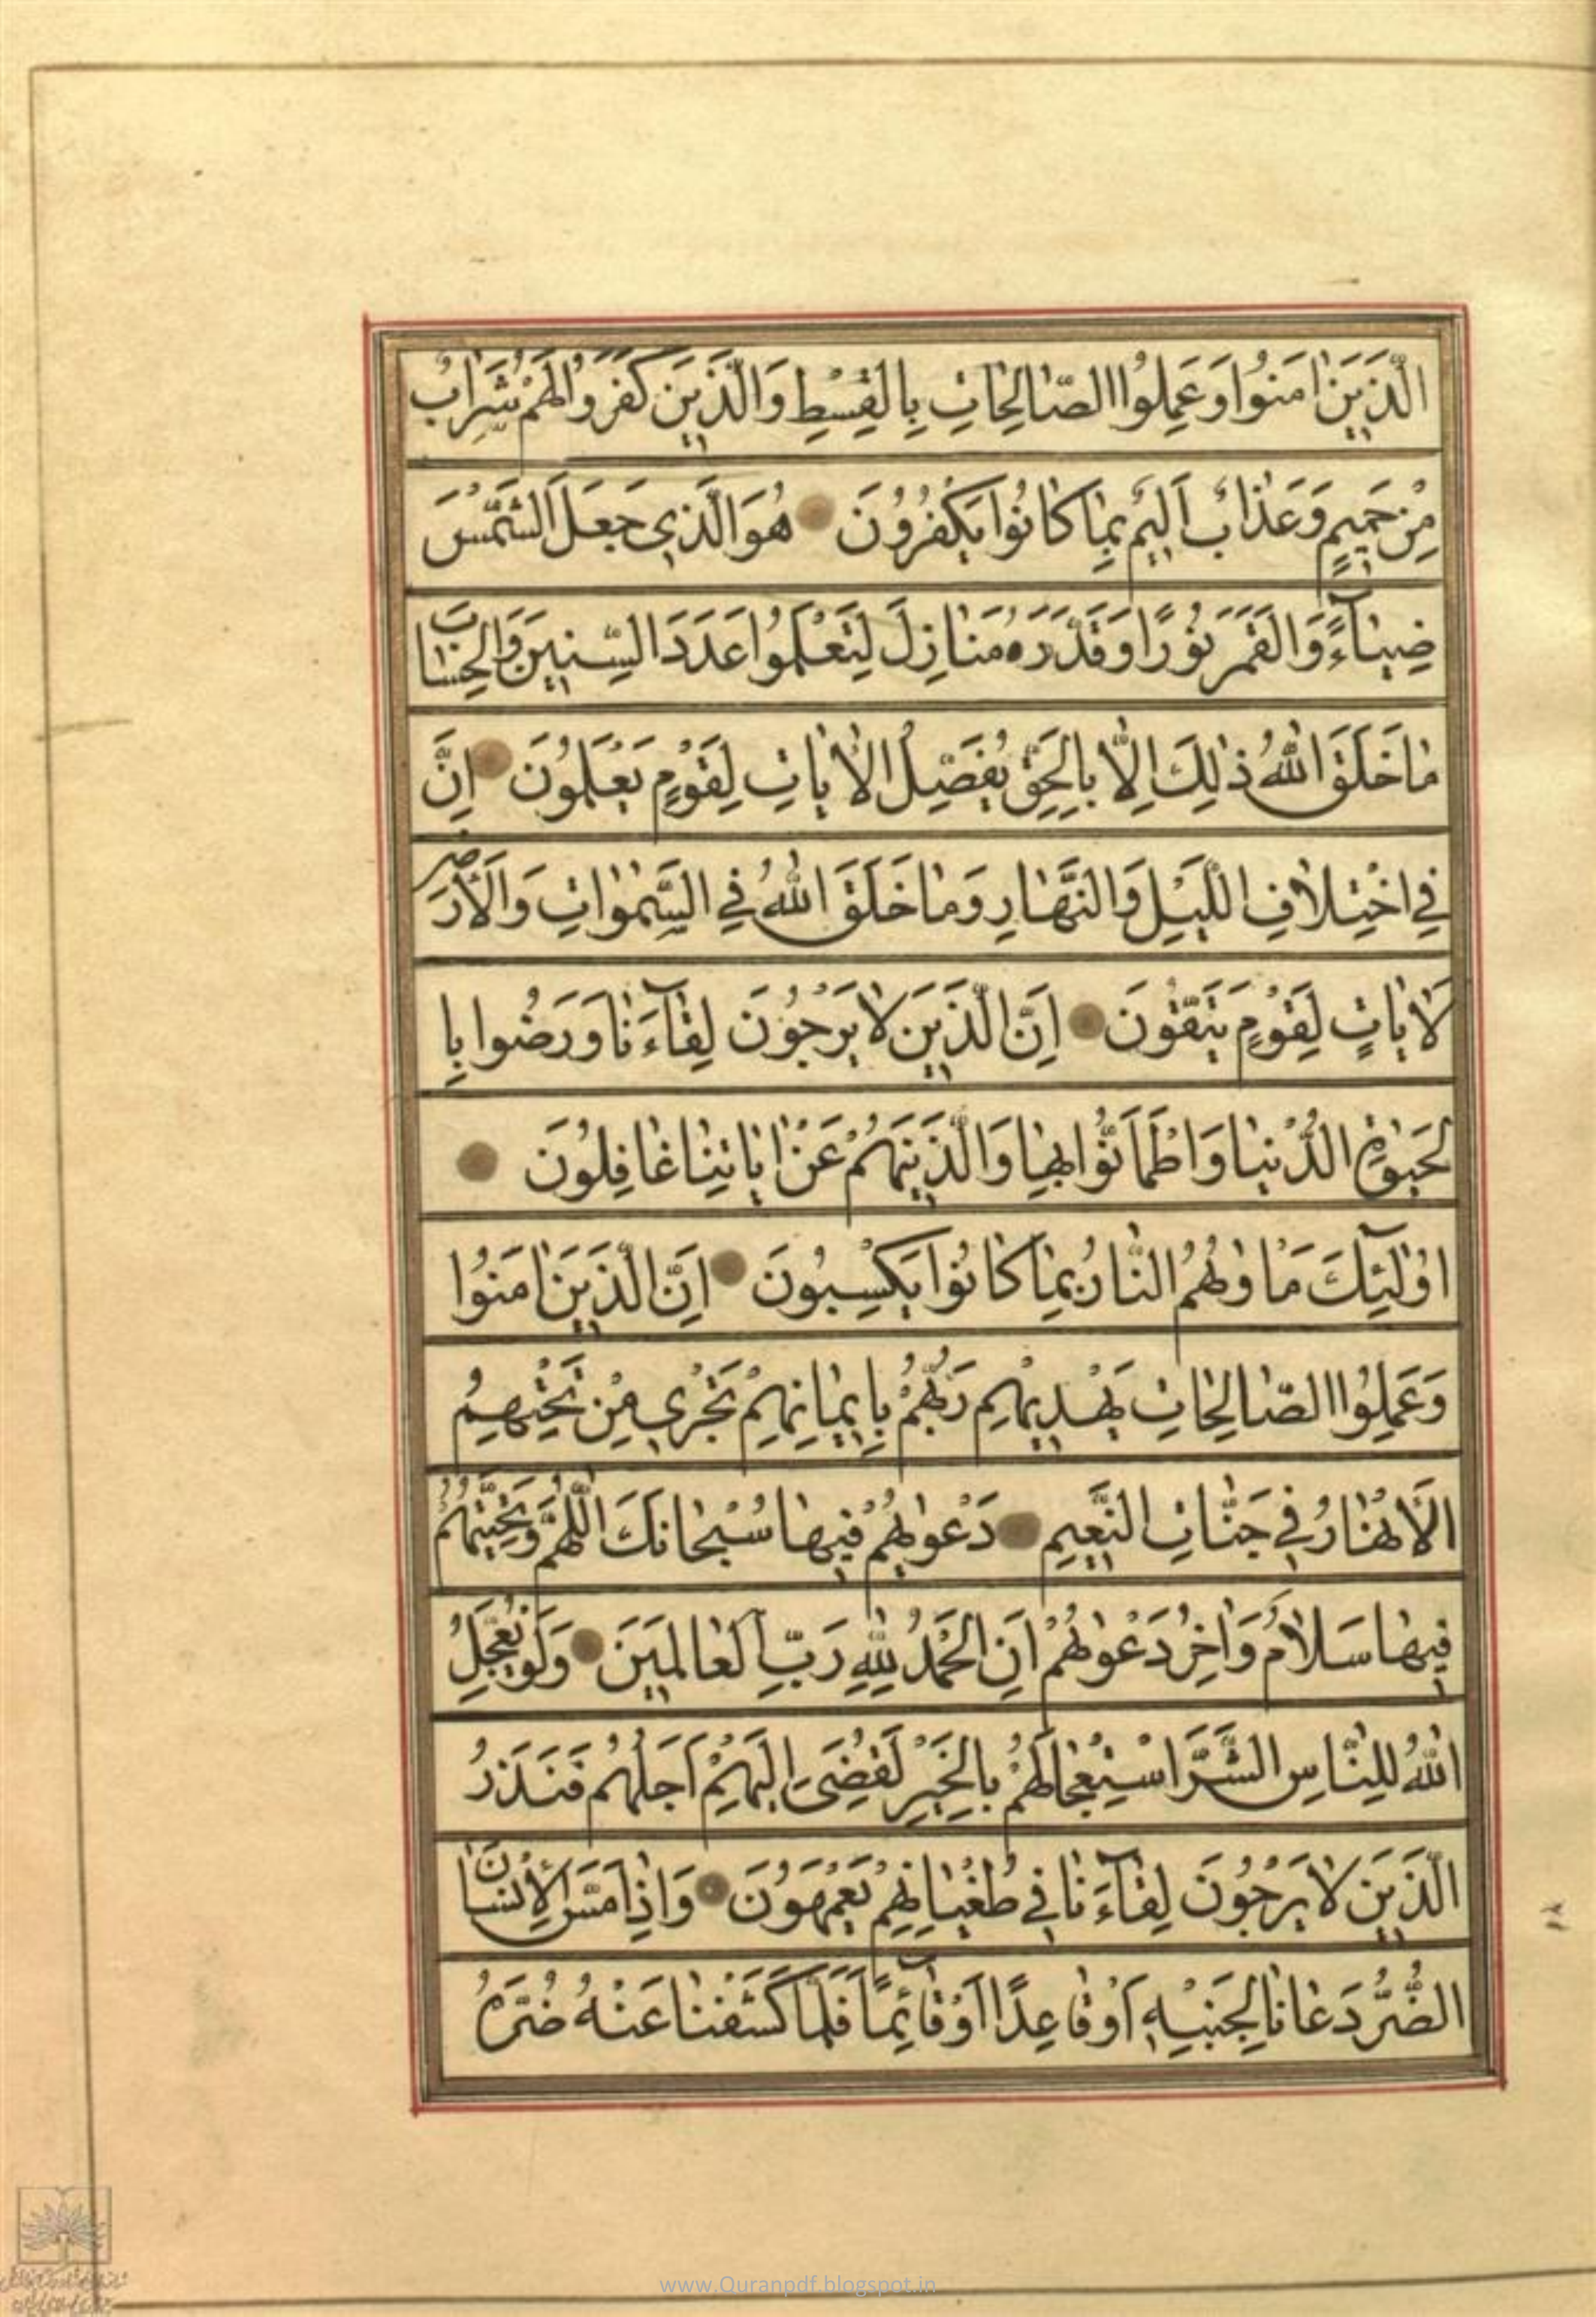 الَّذَينَ اٰمَنُوا وَعَمِلُوا الصّٰالِحٰاتِ بِالقِسْطِ وَالَّذَينَ كَفَروُا لَهُمْ شَرَابٌ
مِنْ حَميمٍ وَعَذٰابٌ اَليمٌ بِمٰا كٰانُوا يَكْفُرُونَ هُوَ الَّذي جَعَلَ الشَّمْسَ
ضِيٰاءً وَالقَمَرَ نُورًا وَقَدَّرَهُ مَنٰازِلَ لِتَعْلَمُوا عَدَدَ السِّنينَ وَالحِسٰابَ
مٰا خَلَقَ اللّٰهُ ذٰلِكَ اِلّٰا بِالحَقِّ يُفَصِّلُ الاٰيٰاتِ لِقَوْمٍ يَعْلَمُونَ اِنَّ
فِي اخْتِلٰافِ اللَّيْلِ وَالنَّهٰارِ وَمٰا خَلَقَ اللّٰهُ فِي السَّمٰوٰاتِ وَالاَرْضِ
لَاٰيٰاتٍ لِقَوْمٍ يَتَّقُونَ اِنَّ الَّذَينَ لٰا يَرْجُوُنَ لِقٰآءَنٰا وَرَضُوا بِا
لحَيٰوةِ الدُّنْيٰا وَاطْمَاَنُّوا بِهٰا وَالَّذَينَهُمْ عَنْ اٰيٰاتِنٰا غٰافِلُونَ
اوُلٰٓئِكَ مَاْوٰهُمُ النّٰارُ بِمٰا كٰانُوا يَكْسِبُونَ اِنَّ الَّذَينَ اٰمَنُوا
وَعَمِلُوا الصّٰالِحٰاتِ يَهْديهِمْ رَبُّهُمْ بِايمٰانِهِمْ تَجْري مِنْ تَحْتِهِمُ
الاَنْهٰارُ في جَنّٰاتِ النَّعيمِ دَعْوٰيهُمْ فيهٰا سُبْحٰانَكَ اللّٰهُمَّ وَتَحِيَّتُهُمْ
فيهٰا سَلٰامٌ وَاٰخِرُ دَعْوٰيهُمْ اَنِ الحَمْدُ لِلّٰهِ رَبِّ العٰالَمينَ وَلَوْ يُعَجِّلُ
اللّٰهُ لِلنّٰاسِ الشَّرَّ اسْتِعْجٰالَهُمْ بِالخَيْرِ لَقُضِىَ اِلَيْهِمْ اَجَلُهُمْ فَنَذَرُ
الَّذَينَ لٰا يَرْجُوُنَ لِقٰآءَنٰا في طُغْيٰانِهِمْ يَعْمَهُونَ وَاِذٰا مَسَّ الاِنْسٰانَ
الضُّرُّ دَعٰانٰا لِجَنْبِهِ اَوْ قٰاعِدًا اَوْ قٰآئِمًا فَلَمّٰا كَشَفْنٰا عَنْهُ ضُرَّهُ
www.Quranpdf.blogspot.in